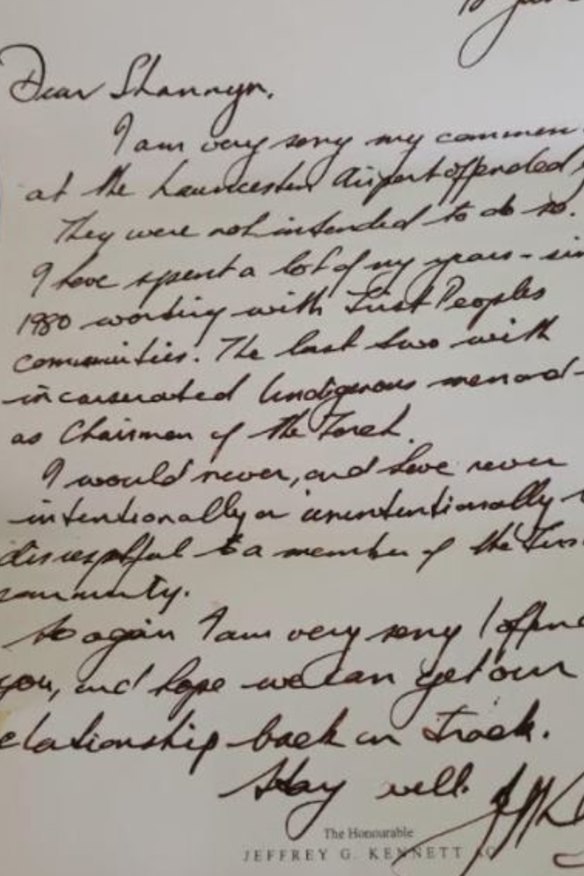 Dear Shannyn,
I am very sorry my commen
at the Launceston Airport offended
They were not intended to do so.
I have spent a lot of my years - sin
1980 working with First Peoples
communities. The last two with
incarserated Indigenous men and
as Chairman of the Torch.
I would never, and have never
intentionally or unintentionally
disrespectful to a member of the Firs
community.
So again I am very sorry I offend
you, and hope we can get our
elationship back on track.
Stay well.
The Honourable
JEFFREY G. KENNETT AC